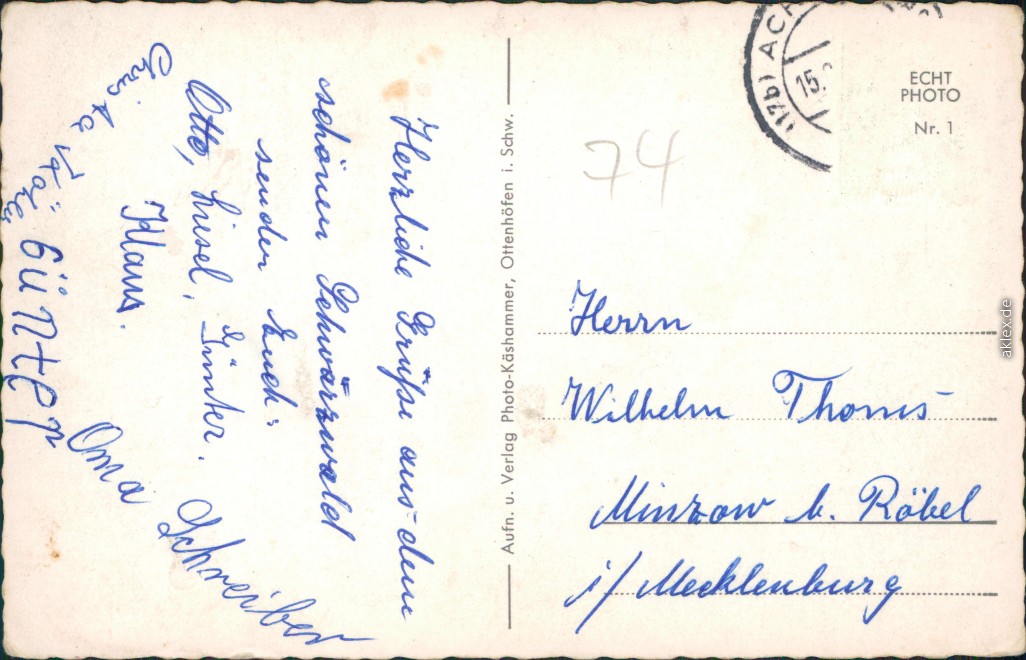 Herzliche Grüße aus dem
schönen Schwarzwald
senden Euch:
Otto, Liesel, Günter.
Klaus.
GÜNTER
Oma Schreiber
Aufn. u. Verlag Photo-Käshammer, Ottenhöfen i. Schw.
(17b) ACH
15.
ECHT
PHOTO
Nr. 1
74
Herrn
Wilhelm Thoms
Minzow b. Röbel
i/ Mecklenburg
aklex.de